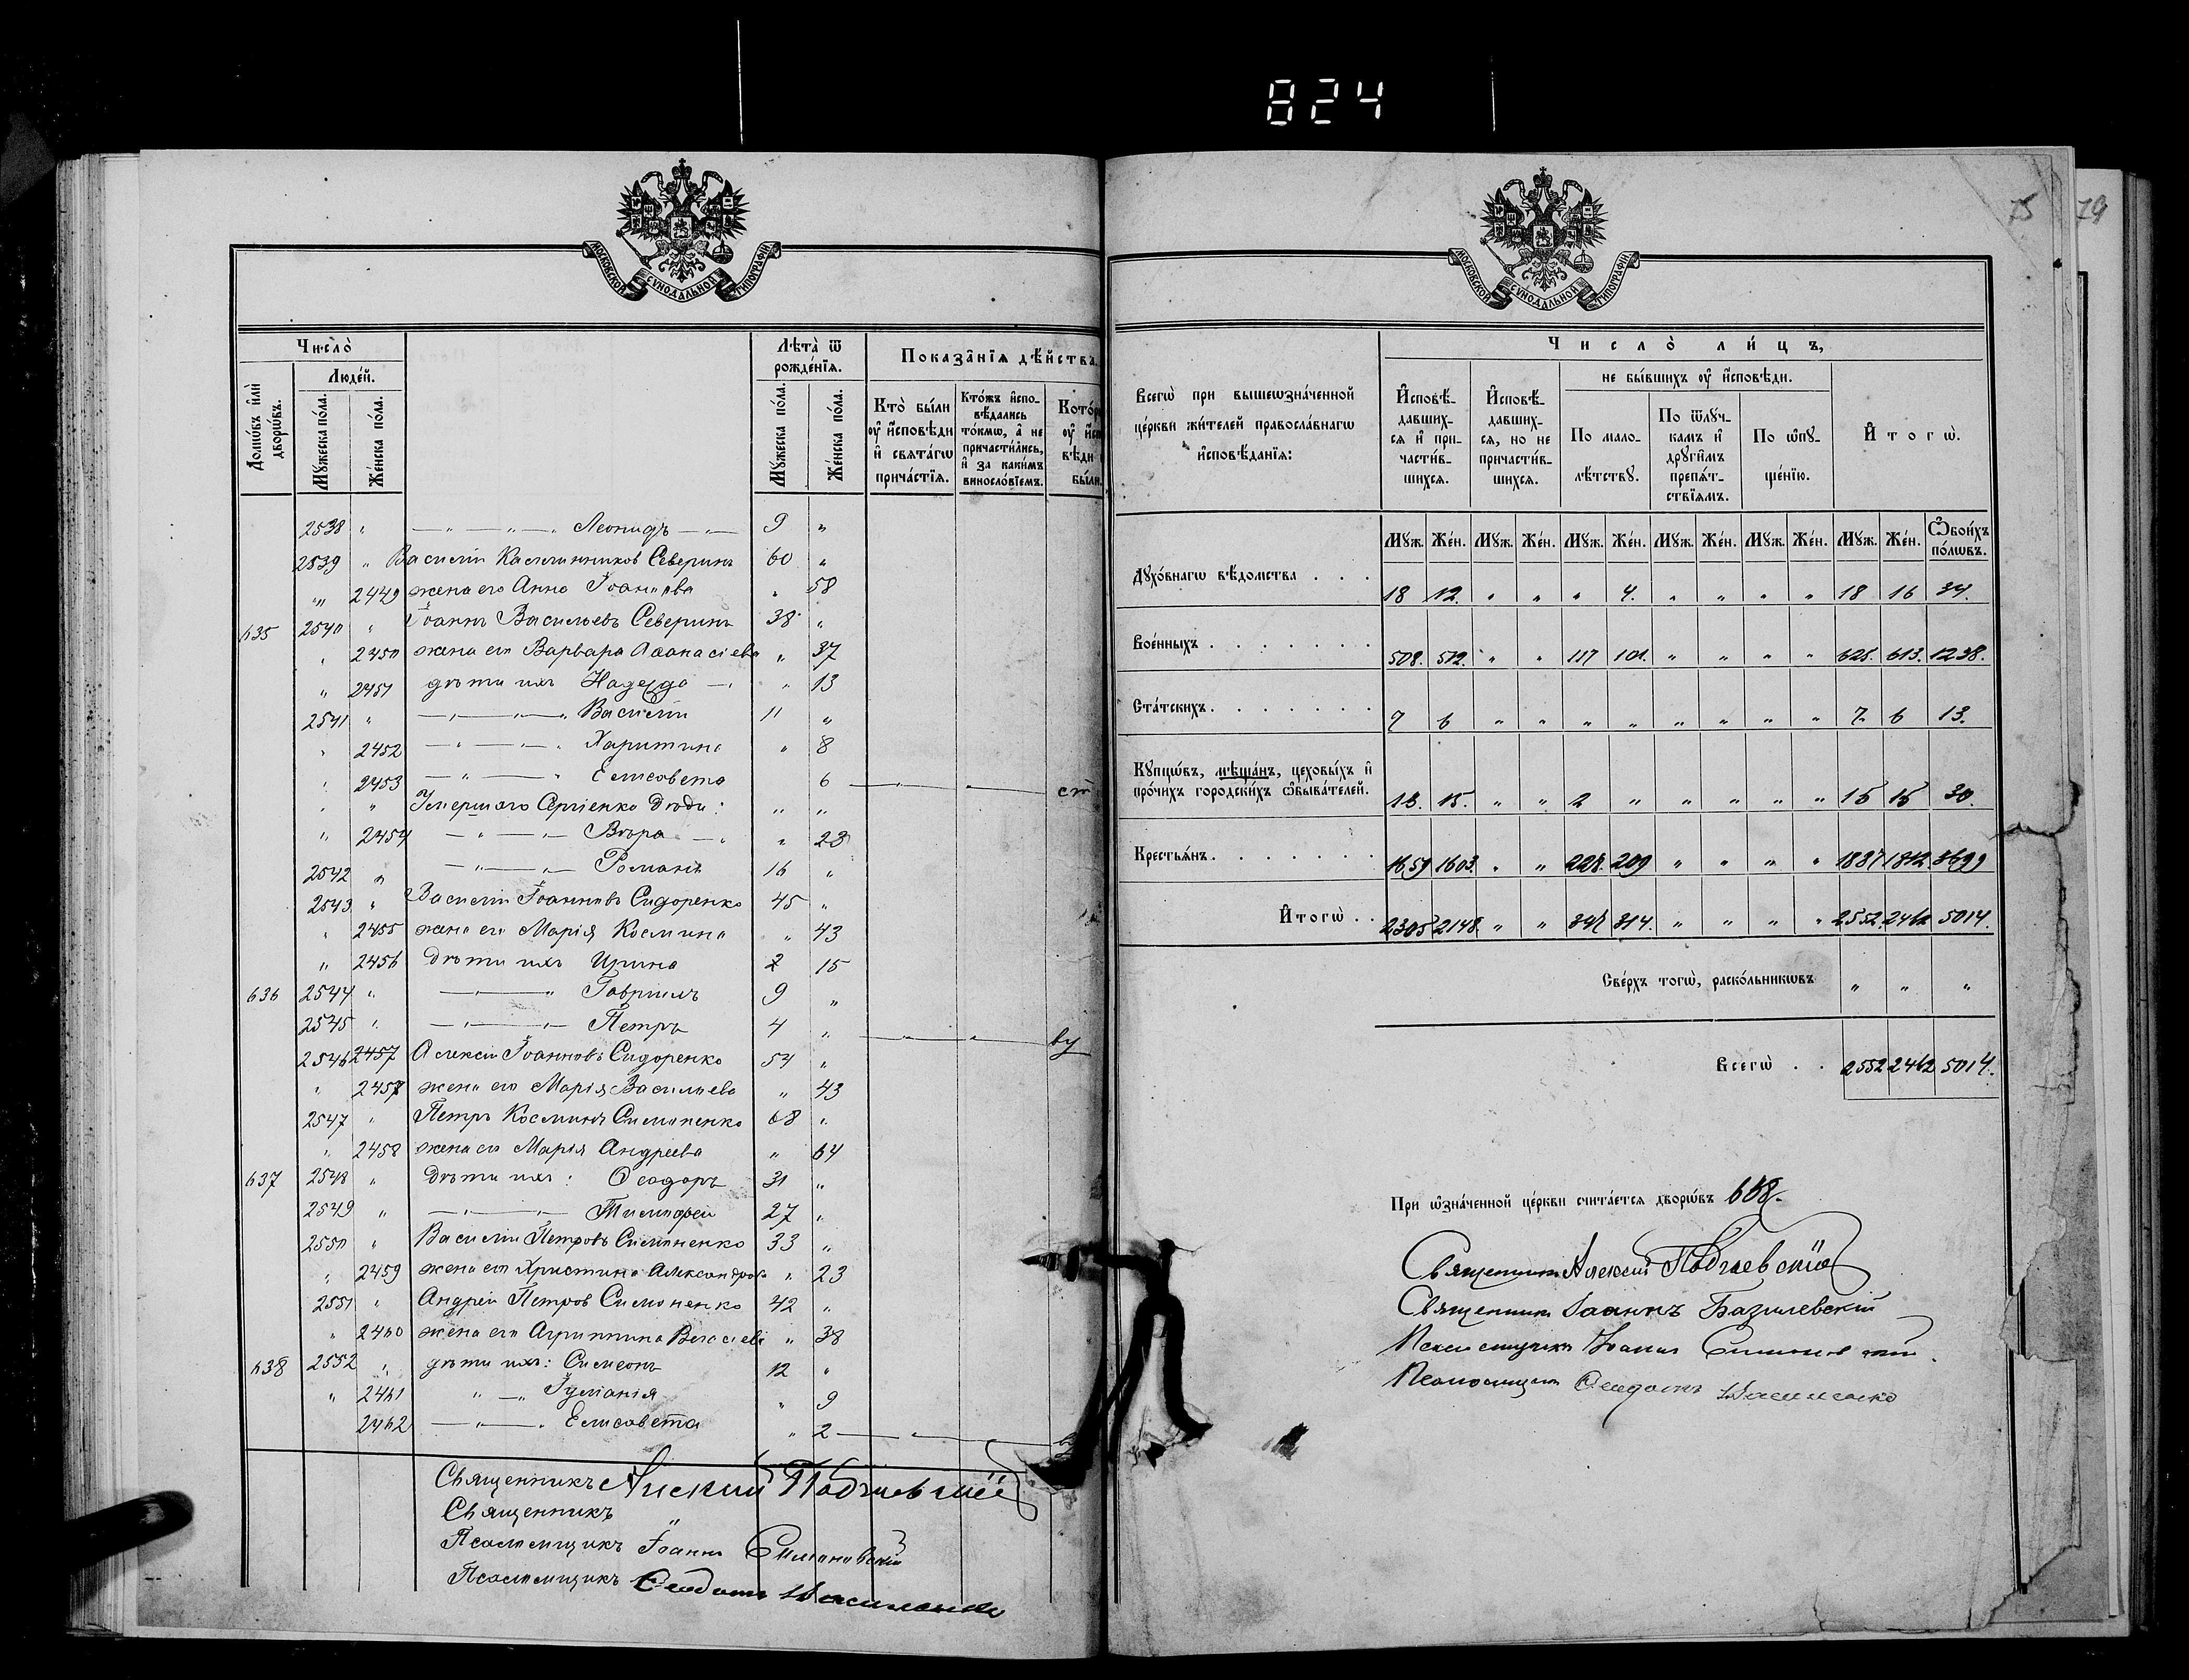 824
75 79
МОСКОВСКОЙ СѴНОДАЛЬНОЙ ТИПОГРАФІИ.
Число̀
Домѡ́въ и҆лѝ дворѡ́въ.
Люде́й.
Мꙋ́жеска по́ла.
Же́нска по́ла.
Лѣ́та ѿ рожде́нїѧ.
Мꙋ́жеска по́ла.
Же́нска по́ла.
Показа́нїѧ дѣ́йствъ.
Кто̀ бы́ли оу҆ и҆́сповѣди и҆ свѧта́гѡ прича́стїѧ.
Кто́жъ и҆спо- вѣ́дались то́кмѡ, а҆ не причасти́лись, и҆ за каки́мъ винослові́емъ.
2538 " —"—"—" Леонидъ —"— 9 "
2539 " Василій Калинниковъ Северинъ 60 "
" 2449 жена его Анна Іоаннова " 58
635 2540 " Іоаннъ Васильевъ Северинъ 38 "
" 2450 жена его Варвара Аѳанасіева " 37
" 2451 дѣти ихъ Надежда —" " 13
2541 " —"—"—" Василій 11 "
" 2452 —"—"—" Харитина " 8
" 2453 —"—" Елисавета 6 —"—"— ст
" " Умершаго Сергіенко дѣти: " "
" 2454 —"—"— Вѣра —" " 23
2542 " —"—"— Романъ 16 "
2543 " Василій Іоанновъ Сидоренко 45 "
" 2455 жена его Марія Космина " 43
" 2456 дѣти ихъ Ирина 2 15
636 2544 " —"—" Гавріилъ 9 "
2545 " —"—"— Петръ 4 " —"—"— ву
2546 2457 Алексій Іоанновъ Сидоренко 54 "
" 2457 жена его Марія Васильева " 43
2547 " Петръ Косминъ Симоненко 68 "
" 2458 жена его Марія Андреева " 64
637 2548 " дѣти ихъ: Ѳеодоръ 31 "
2549 " —"—"— Тимоѳей 27 "
2550 " Василій Петровъ Симоненко 33 "
" 2459 жена его Христина Александрова " 23
2551 " Андрей Петров Симоненко 42 "
" 2460 жена его Агриппина " 38
638 2552 " дѣти ихъ: Симеонъ 12 "
" 2461 "—"— Іуліанія " 9
2462 —"—" Елисавета " 2 —"—
Священникъ Алексій
Священникъ "
Псаломщикъ Іоаннъ Симоновскій
Псаломщикъ Ѳеодотъ Василенко
Всегѡ̀ при вышеѡзна́ченной це́ркви жи́телей правосла́внагѡ и҆сповѣ́данїѧ:
Число̀ ли́цъ,
И҆сповѣ́- давших- сѧ и҆ при- части́в- шихсѧ.
И҆сповѣ́- давших- сѧ, но не причасти́в- шихсѧ.
не бы́вшихъ оу҆ и҆́сповѣди.
По мало- лѣ́тствꙋ.
По ѿлꙋ́ч- камъ и҆ дрꙋги̑мъ препѧ́т- ствїѧмъ.
По ѡ҆пꙋ- ще́нїю.
И҆тогѡ̀.
Мꙋж. Же́н. Мꙋж. Же́н. Мꙋж. Же́н. Мꙋж. Же́н. Мꙋж. Же́н. Мꙋж. Же́н. Ѻ҆бои́хъ по́лѡвъ.
Дꙋхо́внагѡ вѣ́домства . . . 18 12. " " " 4. " " " " 18 16 34.
Вое́нныхъ . . . . . . . 508. 512. " " 117 101. " " " " 625. 613. 1238.
Ста́тскихъ . . . . . . . 7 6 " " " " " " " " 7. 6 13.
Кꙋпцѡ́въ, мѣща́нъ, цеховы́хъ и҆ про́чихъ городски́хъ ѡ҆быва́телей. 13. 15. " " 2 " " " " " 15 15 30.
Крестья́нъ . . . . . . . 1659 1603. " " 228. 209 " " " " 1887 1812 3699
И҆тогѡ̀ . . 2305 2148. " " 347 314. " " " " 2552. 2462 5014.
Све́рхъ тогѡ̀, раско́льникѡвъ " " "
Всегѡ̀ . . 2552 2462 5014.
При ѡ҆зна́ченной це́ркви счита́етсѧ дворѡ́въ 638.
Священникъ Алексій
Священникъ Іоаннъ Базилевскій
Псаломщикъ Іоаннъ Симоновскій.
Псаломщикъ Ѳеодотъ Василенко